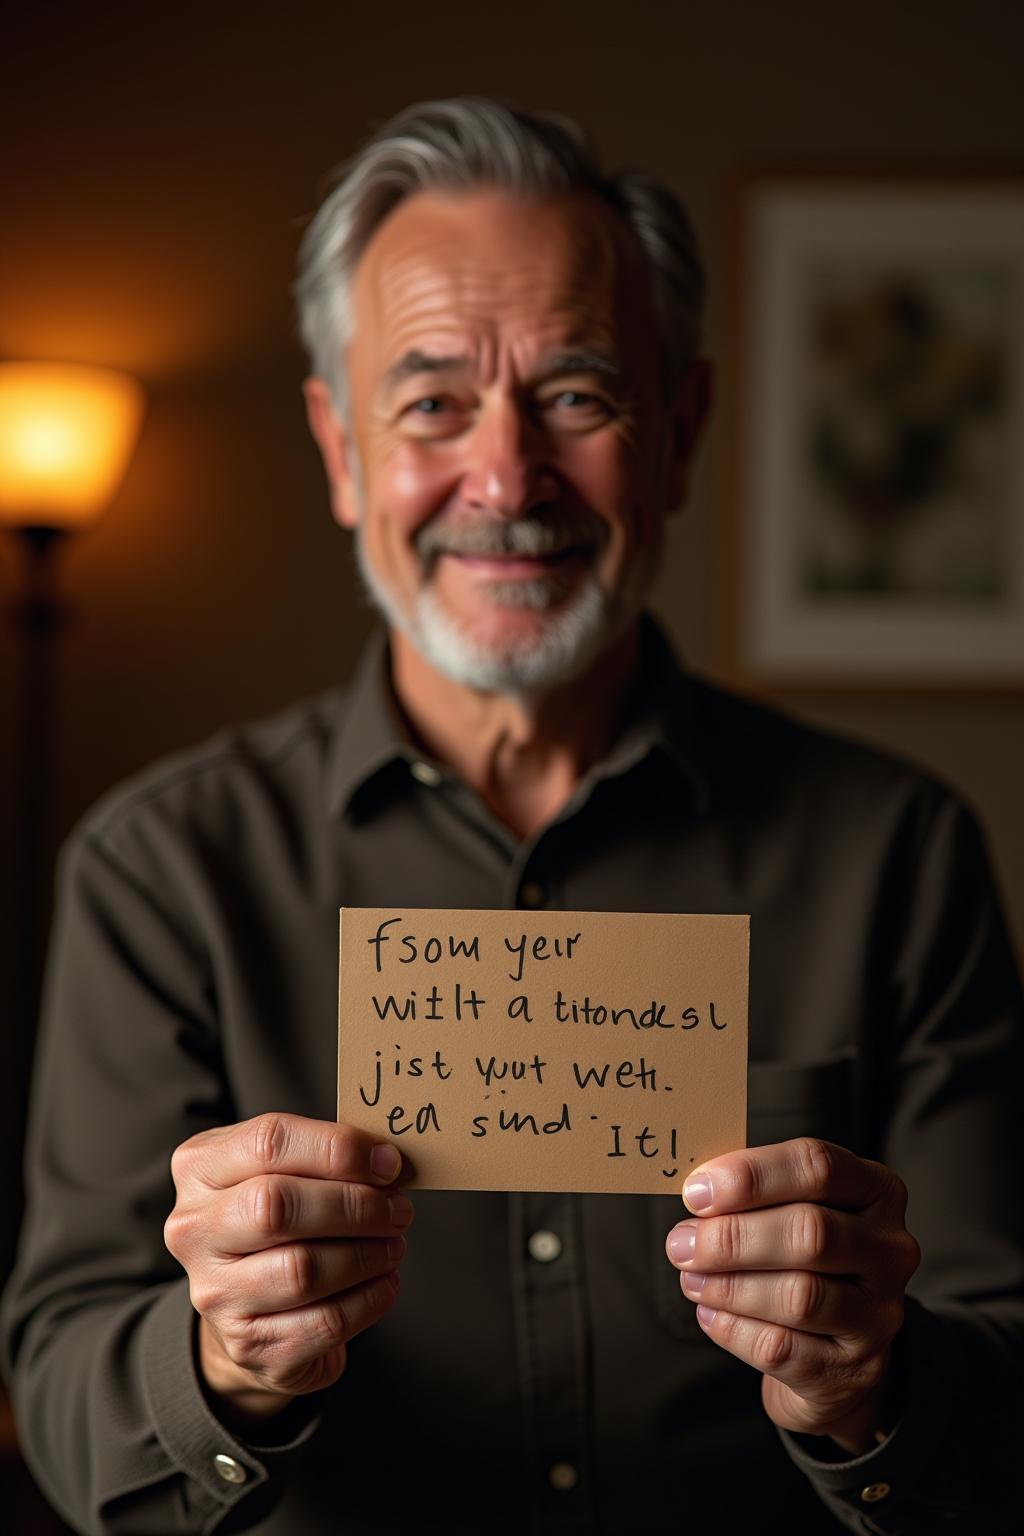 fsom yeir
witlt a titondesl
jist yut weh.
ed sind · It!.